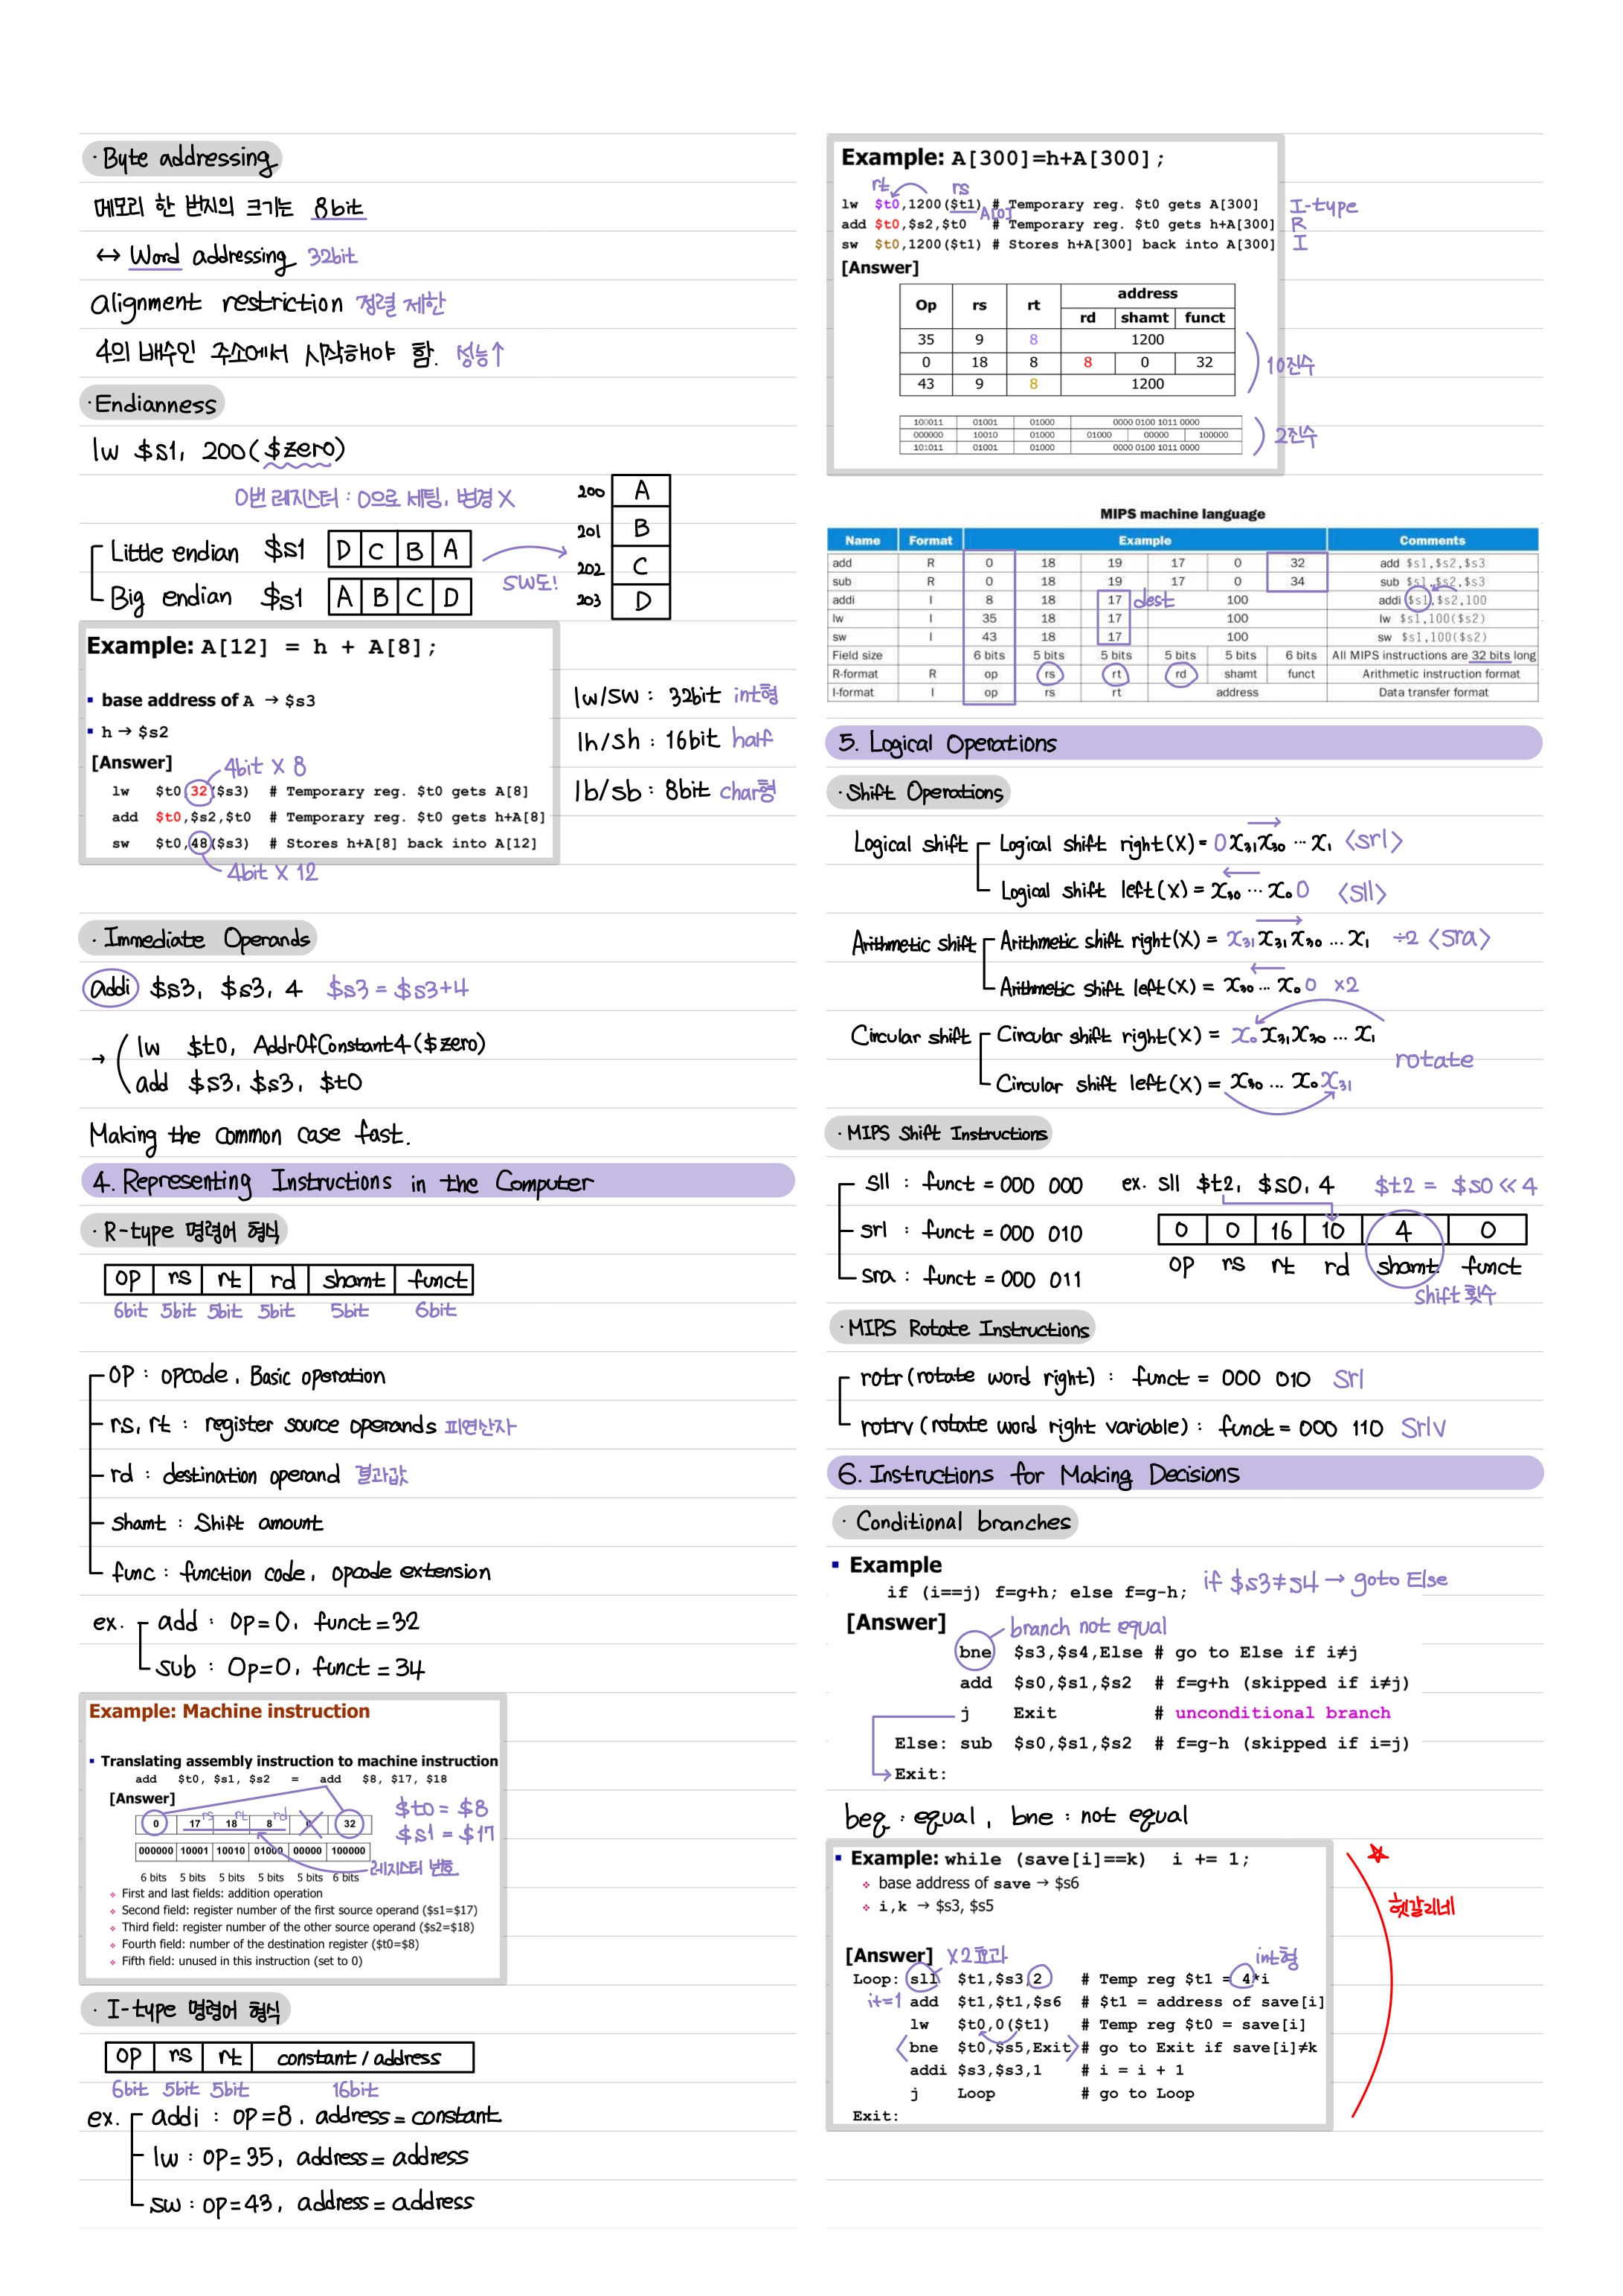 · Byte addressing
메모리 한 번지의 크기는 8bit
↔ Word addressing 32bit
alignment restriction 정렬 제한
4의 배수인 주소에서 시작해야 함. 성능↑
· Endianness
lw $s1, 200($zero)
0번 레지스터 : 0으로 세팅, 변경 X
Little endian $s1 D C B A
Big endian $s1 A B C D
sw도!
200 A
201 B
202 C
203 D
Example: A[12] = h + A[8];
▪ base address of A → $s3
▪ h → $s2
[Answer]
4bit X 8
lw $t0,32($s3) # Temporary reg. $t0 gets A[8]
add $t0,$s2,$t0 # Temporary reg. $t0 gets h+A[8]
sw $t0,48($s3) # Stores h+A[8] back into A[12]
4bit X 12
lw/sw : 32bit int형
lh/sh : 16bit half
lb/sb : 8bit char형
· Immediate Operands
addi $s3, $s3, 4 $s3 = $s3+4
→ ( lw $t0, AddrOfConstant4($zero)
add $s3, $s3, $t0
Making the common case fast.
4. Representing Instructions in the Computer
· R-type 명령어 형식
op rs rt rd shamt funct
6bit 5bit 5bit 5bit 5bit 6bit
op : opcode, Basic operation
rs, rt : register source operands 피연산자
rd : destination operand 결과값
shamt : Shift amount
func : function code, opcode extension
ex. add : op=0, funct=32
sub : Op=0, funct=34
Example: Machine instruction
▪ Translating assembly instruction to machine instruction
add $t0, $s1, $s2 = add $8, $17, $18
[Answer]
rs rt rd
0 17 18 8 0 32
$t0 = $8
$s1 = $17
000000 10001 10010 01000 00000 100000
레지스터 번호
6 bits 5 bits 5 bits 5 bits 5 bits 6 bits
❖ First and last fields: addition operation
❖ Second field: register number of the first source operand ($s1=$17)
❖ Third field: register number of the other source operand ($s2=$18)
❖ Fourth field: number of the destination register ($t0=$8)
❖ Fifth field: unused in this instruction (set to 0)
· I-type 명령어 형식
op rs rt constant / address
6bit 5bit 5bit 16bit
ex. addi : op=8, address=constant
lw : op=35, address=address
sw : op=43, address=address
Example: A[300]=h+A[300];
rt rs
lw $t0,1200($t1) # Temporary reg. $t0 gets A[300] I-type
A[0]
add $t0,$s2,$t0 # Temporary reg. $t0 gets h+A[300] R
sw $t0,1200($t1) # Stores h+A[300] back into A[300] I
[Answer]
Op rs rt address
rd shamt funct
35 9 8 1200
0 18 8 8 0 32
43 9 8 1200
10진수
100011 01001 01000 0000 0100 1011 0000
000000 10010 01000 01000 00000 100000
101011 01001 01000 0000 0100 1011 0000
2진수
MIPS machine language
Name Format Example Comments
add R 0 18 19 17 0 32 add $s1,$s2,$s3
sub R 0 18 19 17 0 34 sub $s1,$s2,$s3
addi I 8 18 17 dest 100 addi $s1,$s2,100
lw I 35 18 17 100 lw $s1,100($s2)
sw I 43 18 17 100 sw $s1,100($s2)
Field size 6 bits 5 bits 5 bits 5 bits 5 bits 6 bits All MIPS instructions are 32 bits long
R-format R op rs rt rd shamt funct Arithmetic instruction format
I-format I op rs rt address Data transfer format
5. Logical Operations
· Shift Operations
Logical shift Logical shift right(X) = 0x31x30 ... x1 <srl>
Logical shift left(X) = x30 ... x0 0 <sll>
Arithmetic shift Arithmetic shift right(X) = x31x31x30 ... x1 ÷2 <sra>
Arithmetic shift left(X) = x30 ... x0 0 ×2
Circular shift Circular shift right(X) = x0x31x30 ... x1
rotate
Circular shift left(X) = x30 ... x0x31
· MIPS Shift Instructions
sll : funct = 000 000
srl : funct = 000 010
sra : funct = 000 011
ex. sll $t2, $s0, 4 $t2 = $s0 << 4
0 0 16 10 4 0
op rs rt rd shamt funct
shift 횟수
· MIPS Rotate Instructions
rotr (rotate word right) : funct = 000 010 srl
rotrv (rotate word right variable) : funct = 000 110 srlv
6. Instructions for Making Decisions
· Conditional branches
▪ Example
if (i==j) f=g+h; else f=g-h; if $s3≠s4 → goto Else
[Answer]
branch not equal
bne $s3,$s4,Else # go to Else if i≠j
add $s0,$s1,$s2 # f=g+h (skipped if i≠j)
j Exit # unconditional branch
Else: sub $s0,$s1,$s2 # f=g-h (skipped if i=j)
Exit:
beq : equal, bne : not equal
▪ Example: while (save[i]==k) i += 1;
❖ base address of save → $s6
❖ i,k → $s3, $s5
헷갈리네
[Answer] X2효과 int형
Loop: sll $t1,$s3,2 # Temp reg $t1 = 4*i
i+=1 add $t1,$t1,$s6 # $t1 = address of save[i]
lw $t0,0($t1) # Temp reg $t0 = save[i]
bne $t0,$s5,Exit # go to Exit if save[i]≠k
addi $s3,$s3,1 # i = i + 1
j Loop # go to Loop
Exit: